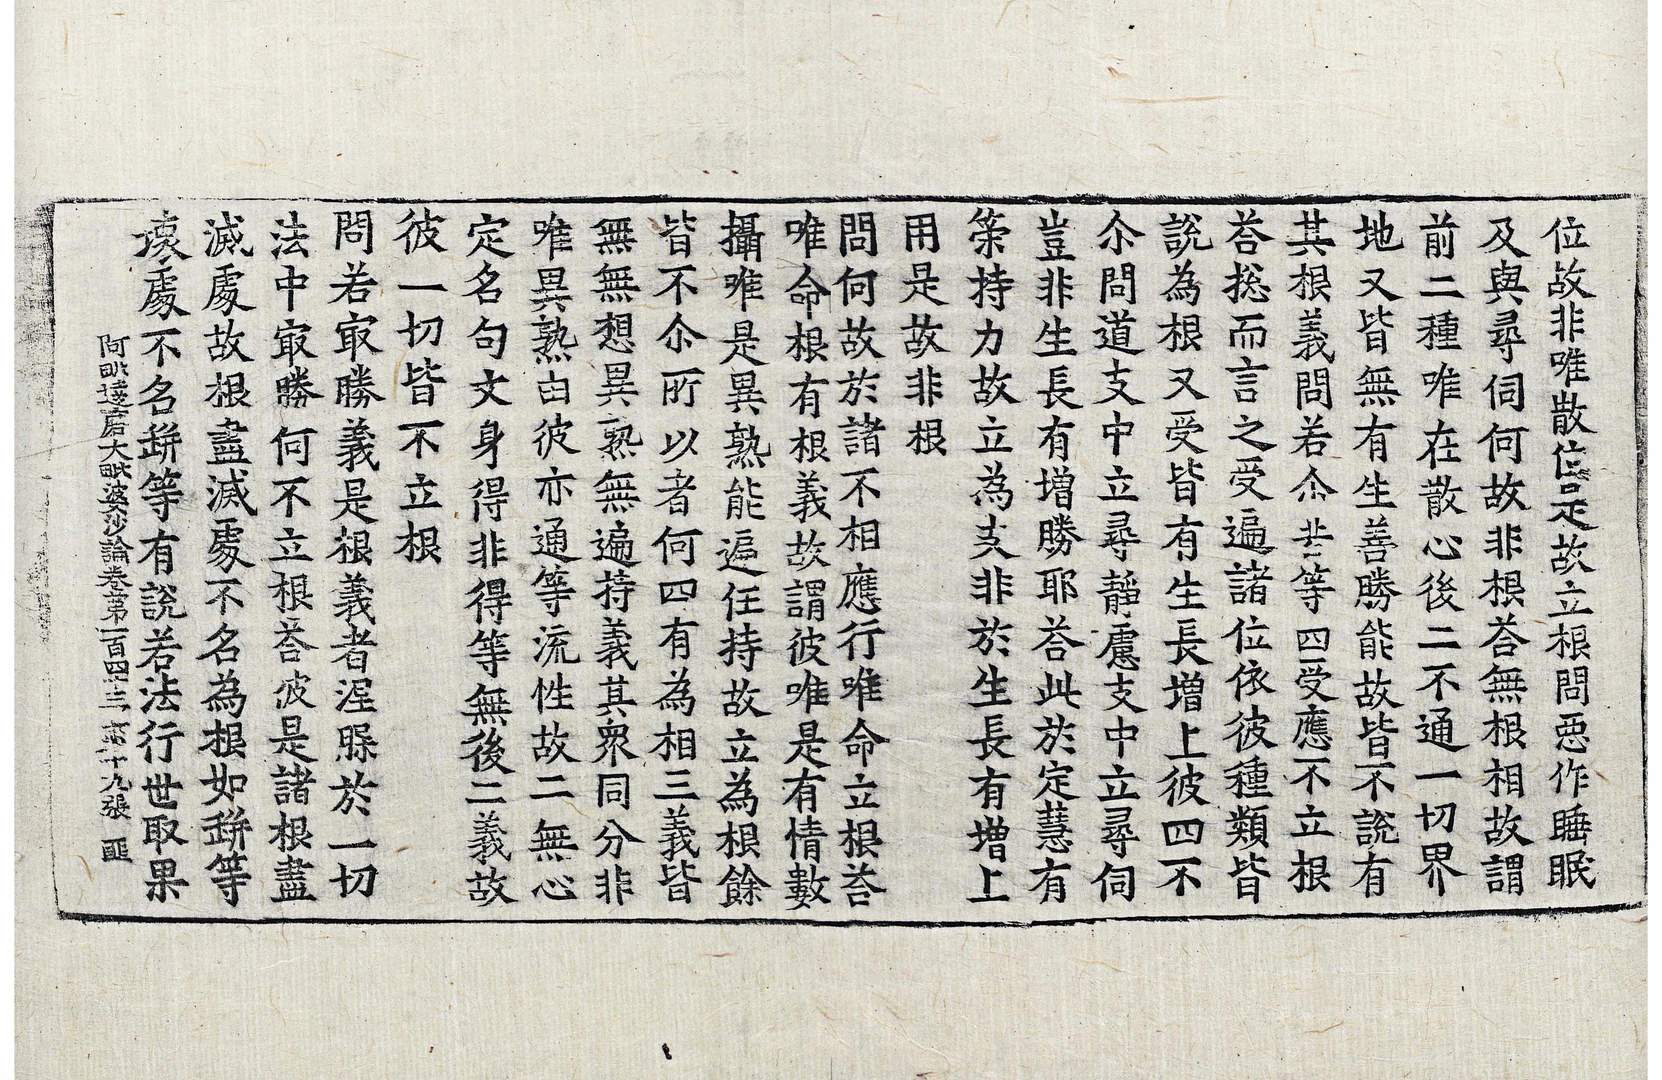 位故非唯散位是故立根問惡作睡眠
及與尋伺何故非根荅無根相故謂
前二種唯在散心後二不通一切界
地又皆無有生善勝能故皆不說有
其根義問若尒苦等四受應不立根
荅捴而言之受遍諸位依彼種類皆
說為根又受皆有生長增上彼四不
尒問道支中立尋靜慮支中立尋伺
豈非生長有增勝耶荅此於定慧有
䇿持力故立為支非於生長有增上
用是故非根
問何故於諸不相應行唯命立根荅
唯命根有根義故謂彼唯是有情數
攝唯是異熟能遍任持故立為根餘
皆不尒所以者何四有為相三義皆
無無想異熟無遍持義其衆同分非
唯異熟由彼亦通等流性故二無心
定名句文身得非得等無後二義故
彼一切皆不立根
問若㝡勝義是根義者涅槃於一切
法中㝡勝何不立根荅彼是諸根盡
滅處故根盡滅處不名為根如缾等
壞處不名缾等有說若法行世取果
阿毗達磨大毗婆沙論卷第一百四十三 第十九張 匪